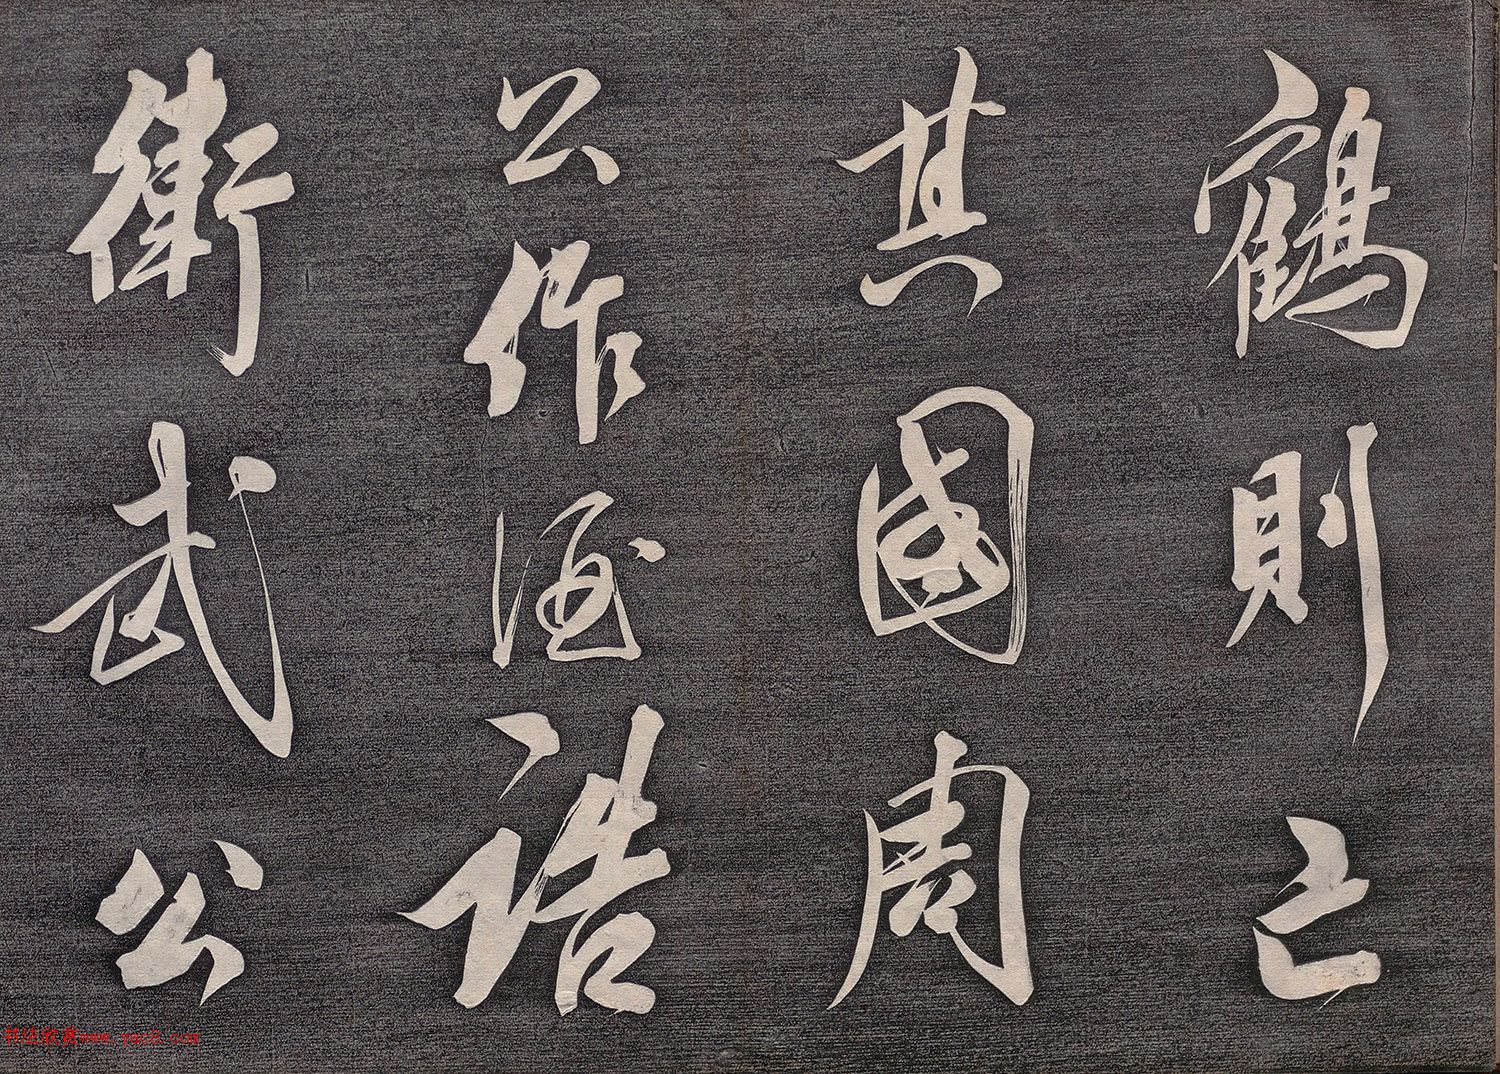 鶴則亡
其國周
公作酒誥
衛武公
书法欣赏www.yac8.com